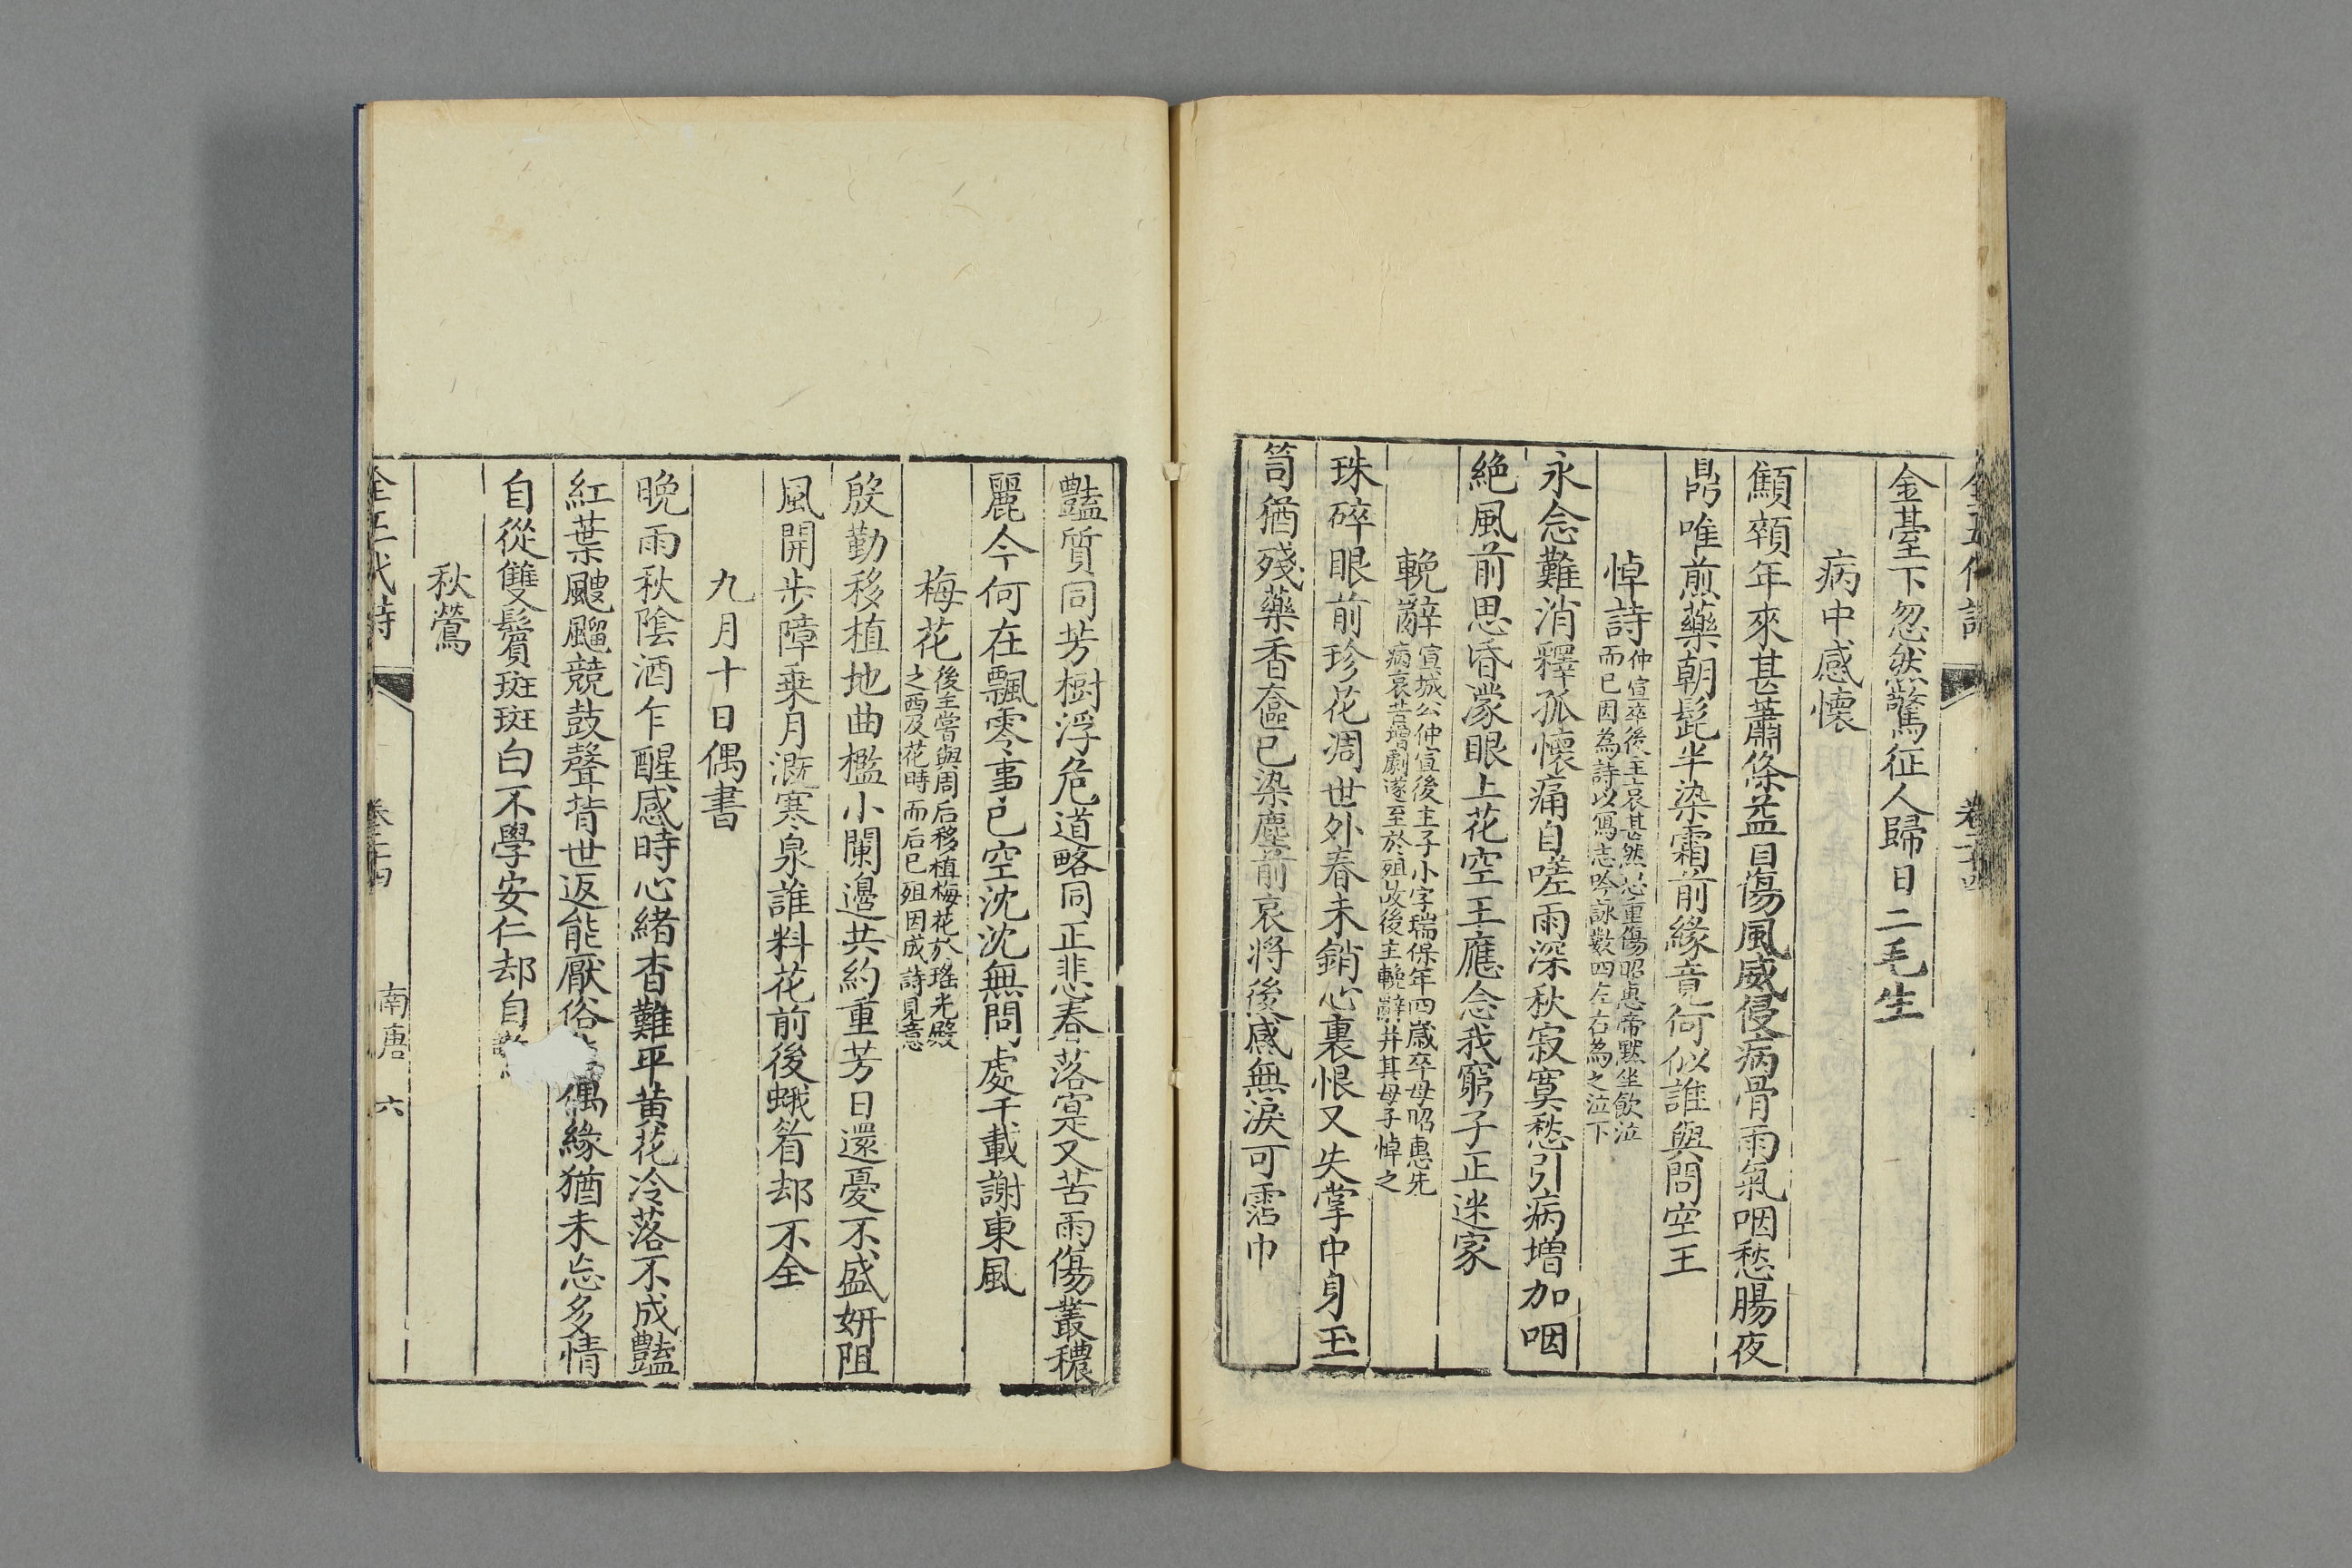 卷二十四
金臺下忽然驚征人歸日二毛生
病中感懷
顦顇年來甚蕭條益自傷風威侵病骨雨氣咽愁腸夜
鼎唯煎藥朝髭半染霜前緣竟何似誰與問空王
悼詩
仲宣卒後主哀甚然恐重傷昭惠帝黙坐飲泣
而已因為詩以寫志吟詠數四左右為之泣下
永念難消釋孤懷痛自嗟雨深秋寂寞愁引病增加咽
絕風前思昏濛眼上花空王應念我窮子正迷家
輓辭
宣城公仲宣後主子小字瑞保年四歲卒母昭惠先
病哀苦增劇遂至於殂故後主輓辭并其母子悼之
珠碎眼前珍花凋世外春未銷心裏恨又失掌中身玉
笥猶殘藥香奩已染塵前哀將後感無淚可霑巾
豔質同芳樹浮危道略同正悲春落寔又苦雨傷叢穠
麗今何在飄零事已空沈沈無問處千載謝東風
梅花
後主嘗與周后移植梅花於瑤光殿
之西及花時而后已殂因成詩見意
殷勤移植地曲檻小闌邊共約重芳日還憂不盛妍阻
風開步障乗月溉寒泉誰料花前後蛾眉却不全
九月十日偶書
晚雨秋陰酒乍醒感時心緒杳難平黄花冷落不成豔
紅葉颼飀競鼓聲背世返能厭俗偶緣猶未忘多情
自從雙鬢斑斑白不學安仁却自
秋鶯
全五代詩
南唐
六